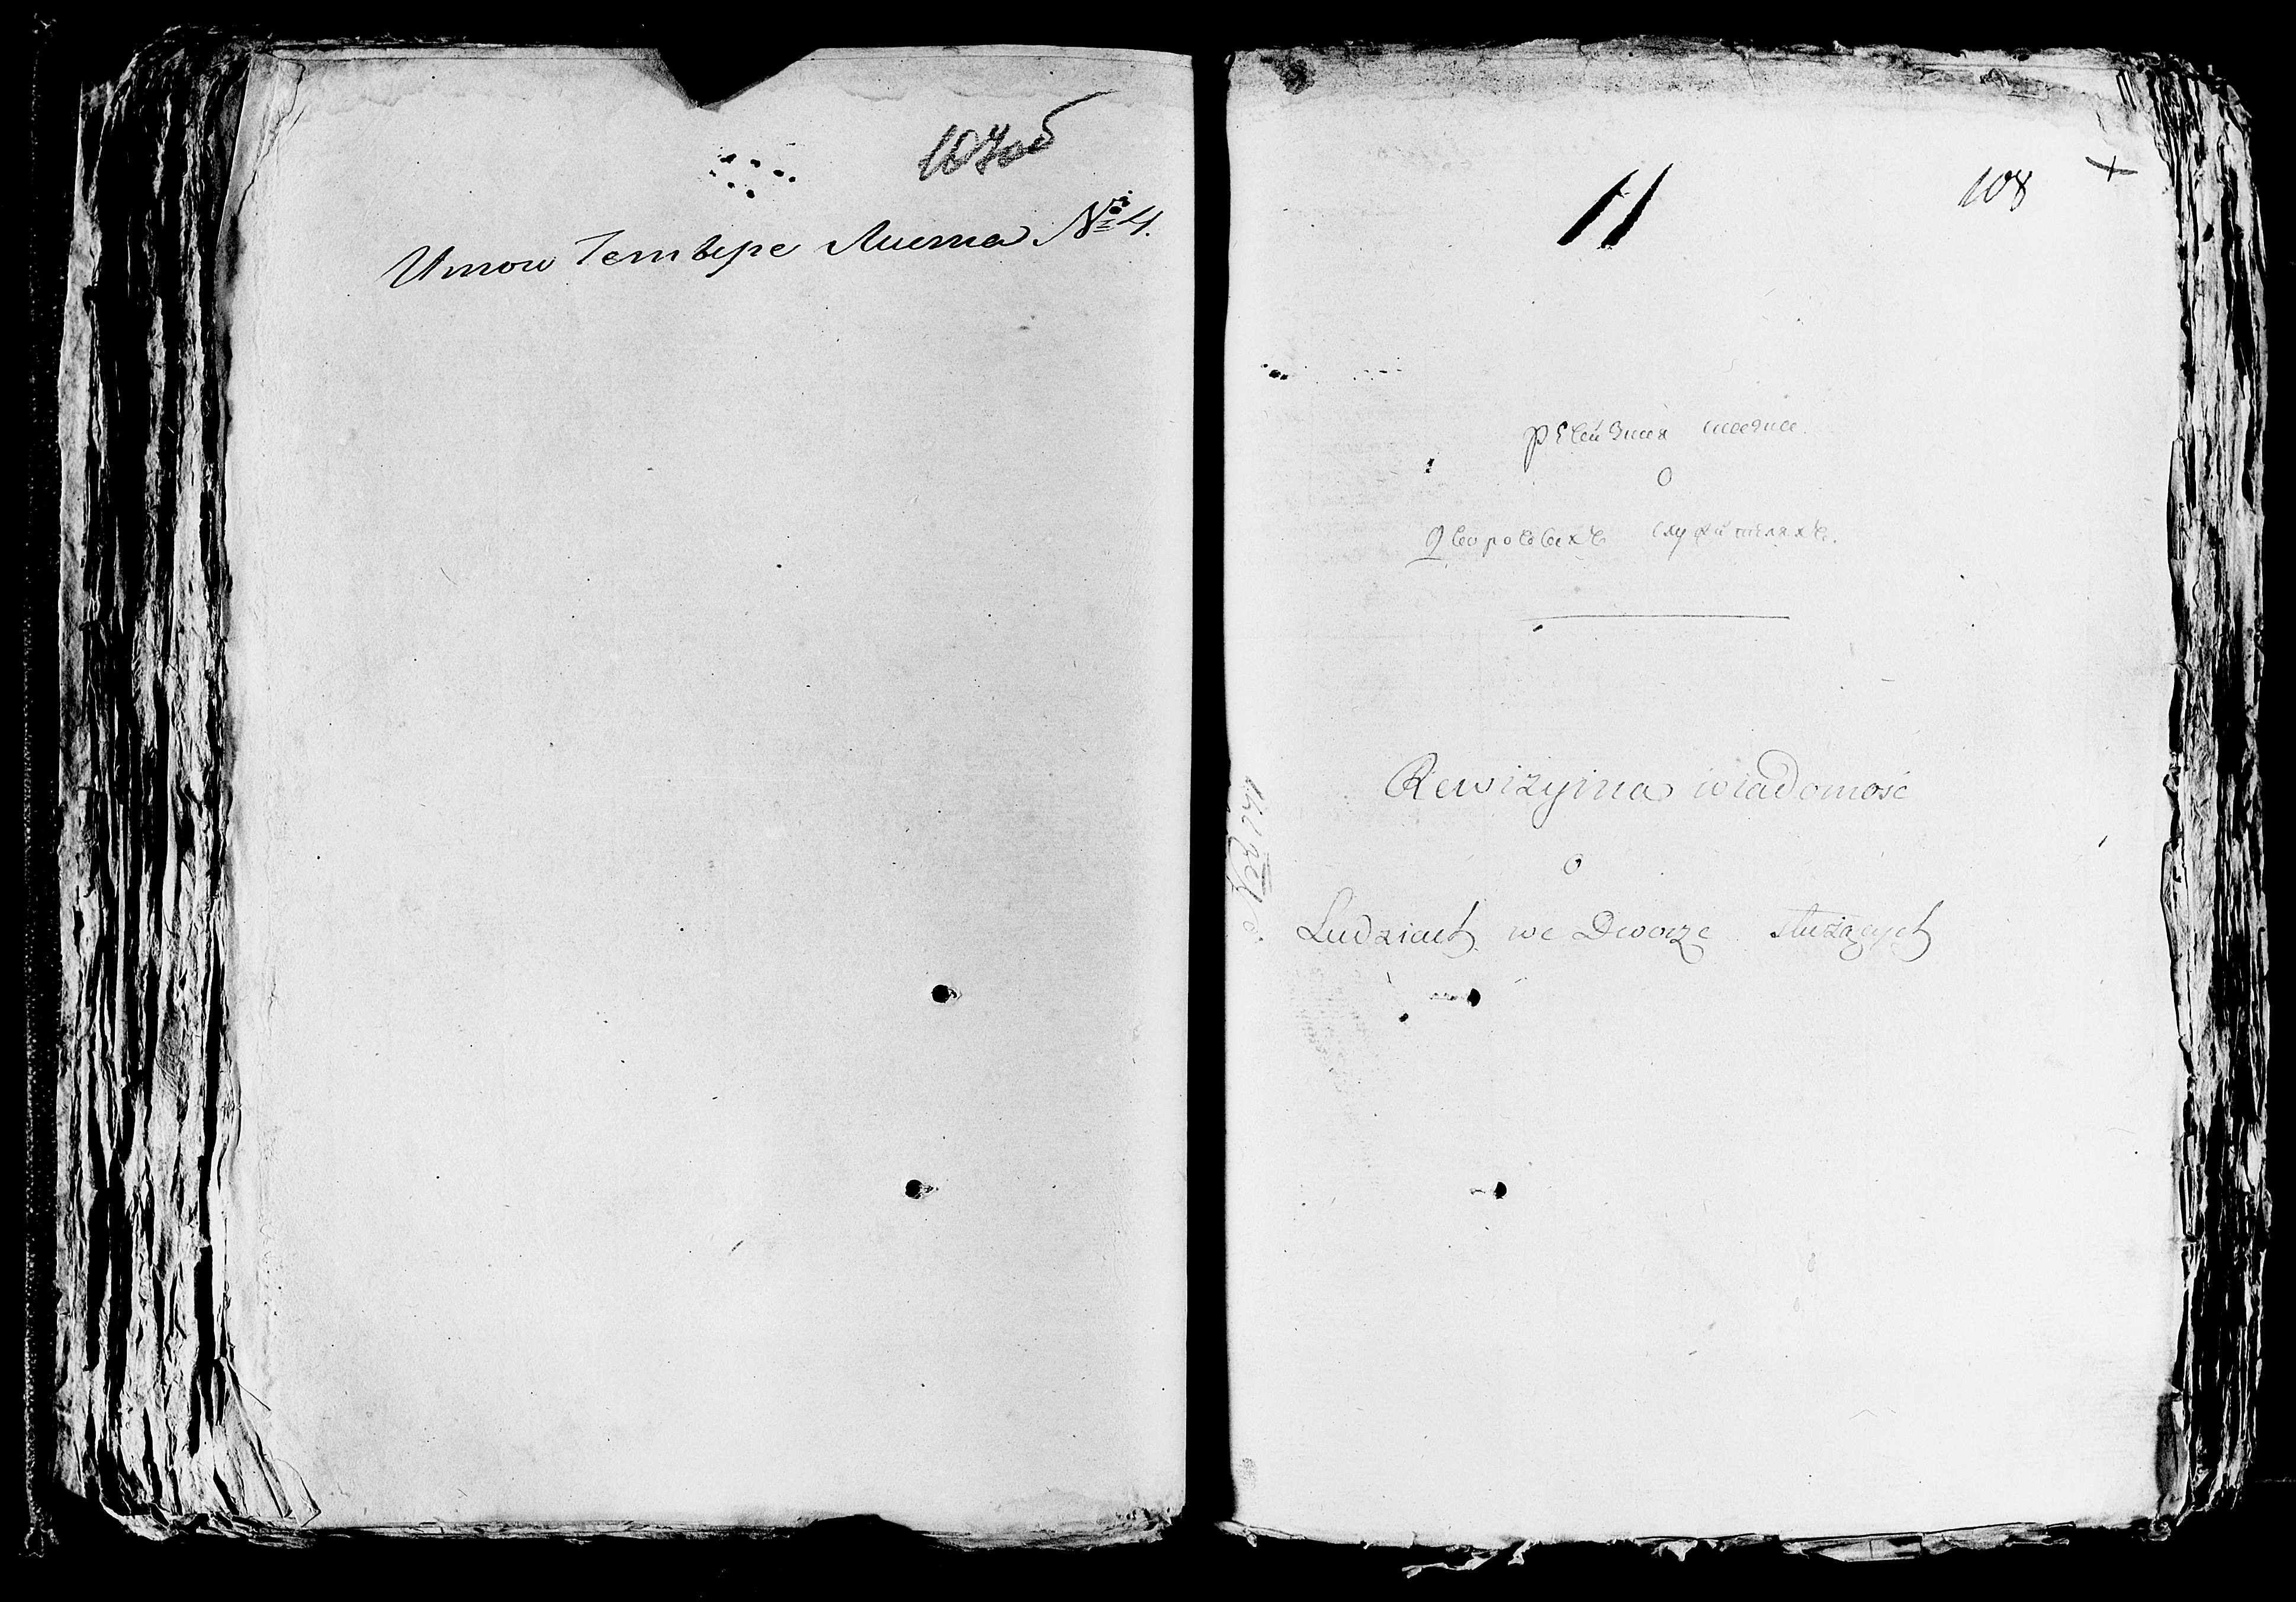 107об
Итого Четыре Листа № 4.
11
108
+
ревизная сказка
о
дворовых служителях.
Rewizyina wiadomość
o
Ludziach we Dworze służących